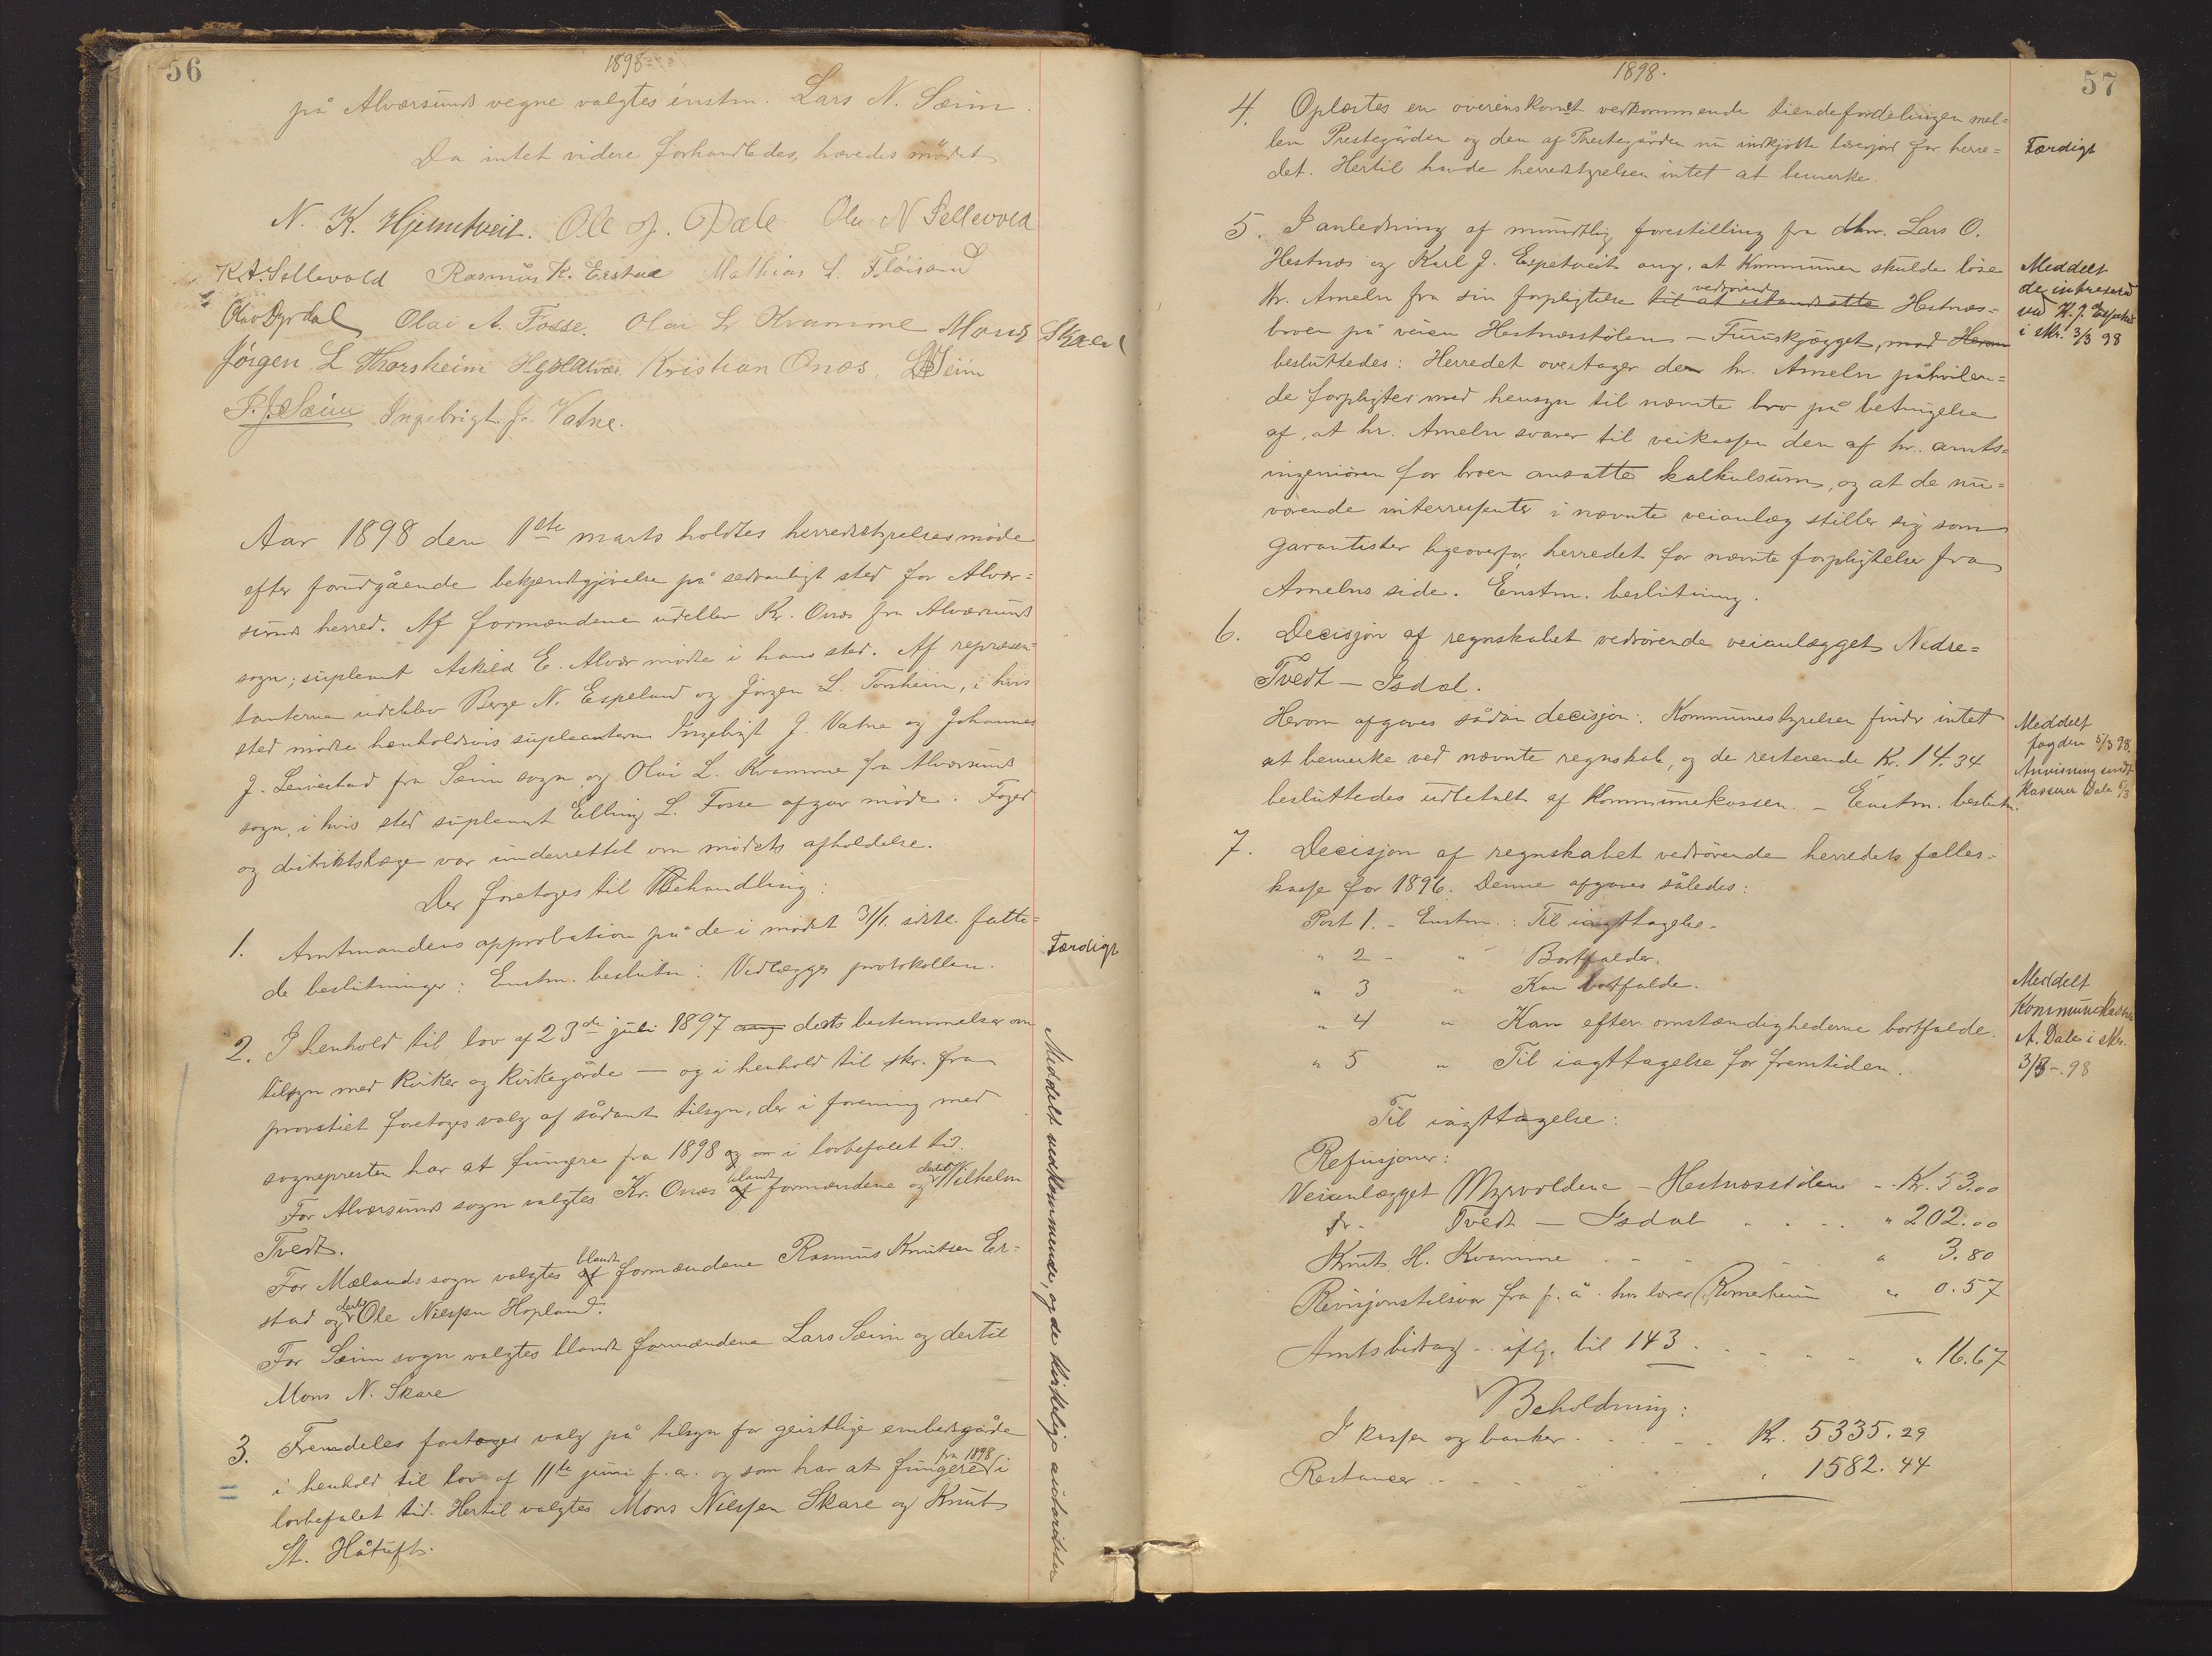 56
1898
på Alværsunds vegne valgtes enstm. Lars N. Sæim.
Da intet videre forhandledes, hævedes mødet
N. K. Hjelmtveit. Ole J. Dale Ole N Sellevold
K. A. Sellevold Rasmus K. Erstad Mathias L. Fløisand
Olav Dyrdal Olai A. Fosse. Olai L Kvamme Mons Skare
Jørgen L Thorsheim Kristian Onæs. L N Seim
J. J. Sæim Ingebrigt J. Vatne.
Aar 1898 den 1ste marts holdtes herredstyrelsesmøde
efter forudgående bekjendtgjørelse på sedvanligt sted for Alvær-
sunds herred. Af formændene udeblev Kr. Onæs fra Alværsunds
sogn; supleant Askild E. Alvær mødte i hans sted. Af repræsen-
tanterne udeblev Berge N. Espeland og Jørgen L. Torsheim, i hvis
sted mødte henholdsvis supleanterne Ingebrigt J. Vatne og Johannes
J. Leivestad fra Sæim sogn, og Olai L. Kvamme fra Alværsunds
sogn, i hvis sted supleant Elling L. Fosse afgav møde. Foged
og distriktslæge var underrettet om mødets afholdelse.
Der foretoges til Behandling:
1. Amtmandens approbation på de i mødet 31/1. sidstl. fatte-
de beslutninger: Enstm. beslutn: Vedlægges protokollen.
Færdigt
2. I henhold til lov af 23de juli 1897 ang dens bestemmelser om
tilsyn med kirker og kirkegårde — og i henhold til skr. fra
provstiet foretoges valg af sådant tilsyn, der i forening med
sognepresten har at fungere fra 1898 og om i lovbefalet tid.
For Alværsunds sogn valgtes Kr. Onæs af blandt formændene og dertil Wilhelm
Tvedt.
For Mælands sogn valgtes af blandt formændene Rasmus Knutsen Er-
stad og dertil Ole Nilssen Hopland.
For Sæim sogn valgtes blandt formændene Lars Sæim og dertil
Mons N. Skare
Meddelt vedkommende, og de kirkelige autoriteter
3. Fremdeles foretoges valg på tilsyn for geistlige embedsgårde
i henhold til lov af 11te juni f. a. og som har at fungere fra 1898 i
lovbefalet tid. Hertil valgtes Mons Nilssen Skare og Knut
St. Håtuft.
57
1898.
4. Oplæstes en overenskomst vedkommende tiendefordelingen mel-
lem Prestegården og den af Prestegården nu indkjøbte lærerjord for herre-
det. Hertil havde herredstyrelsen intet at bemerke.
Færdigt
5. I anledning af mundtlig forestilling fra dhrr. Lars O.
Hestnæs og Karl J. Espetveit ang. at Kommunen skulde løse
Hr. Ameln fra sin forpligtelse til at istandsætte vedrørende Hestnæs-
broen på veien Hestnæsstølen — Furuskjægget, mod Herom
besluttedes: Herredet overtager den hr. Ameln påhvilen-
de forpligter med hensyn til nævnte bro på betingelse
af, at hr. Ameln svarer til veikassen den af hr. amts-
ingeniøren for broen ansatte kalkulsum, og at de nu-
værende interressenter i nævnte veianlæg stiller sig som
garantister ligeoverfor herredet for nævnte forpligtelser fra
Amelns side. Enstm. beslutning.
Meddelt
de interesserede
ved K. J. Espetveit
i skr. 3/3 98
6. Decisjon af regnskabet vedrørende veianlægget Nedre-
Tvedt — Isdal.
Herom afgaves sådan decisjon: Kommunestyrelsen finder intet
at bemerke ved nævnte regnskab, og de resterende Kr. 14.34
besluttedes udbetalt af Kommunekassen. — Enstm. beslutn.
Meddelt
fogden 5/3 98.
Anvisning sendt
Kasserer Dale 5/3
7. Decisjon af regnskabet vedrørende herredets fælles-
kasse for 1896. Denne afgaves således:
Post 1. - Enstm.: Til iagttagelse.
" 2 - " Bortfalder.
" 3 " Kan bortfalde.
" 4 " Kan efter omstændighederne bortfalde.
" 5 " Til iagttagelse for fremtiden.
Meddelt
Kommunekasserer
A. Dale i skr.
3/3 - 98
Til iagttagelse:
Refusjoner:
Veianlægget Myrvoldene — Hestnæsstølen - Kr. 53.00
Do - Tvedt — Isdal . . . . " 202.00
Knut H. Kvamme . . . . " 3.80
Revisjonstilsvar fra f. å. hos lærer Romarheim " 0.57
Amtsbidrag - iflg. bil 143 . . . . " 16.67
Beholdning:
I kassen og banker . . . . Kr. 5335.29
Restancer . . . . " 1582.44